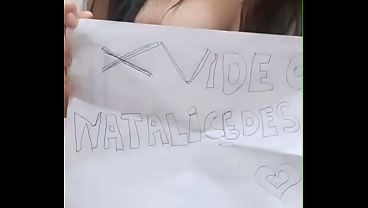 X VIDEO
NATALICEDES